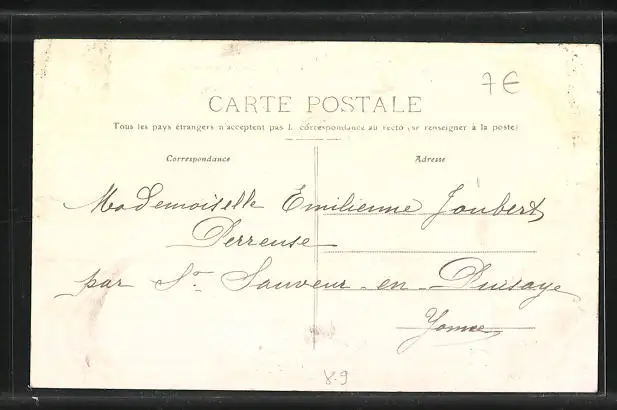 7€
CARTE POSTALE
Tous les pays étrangers n'acceptent pas la correspondance au recto (se renseigner à la poste)
Correspondance
Adresse
Mademoiselle Emilienne Joubert
Perreuse
par St Sauveur-en-Puisaye
Yonne